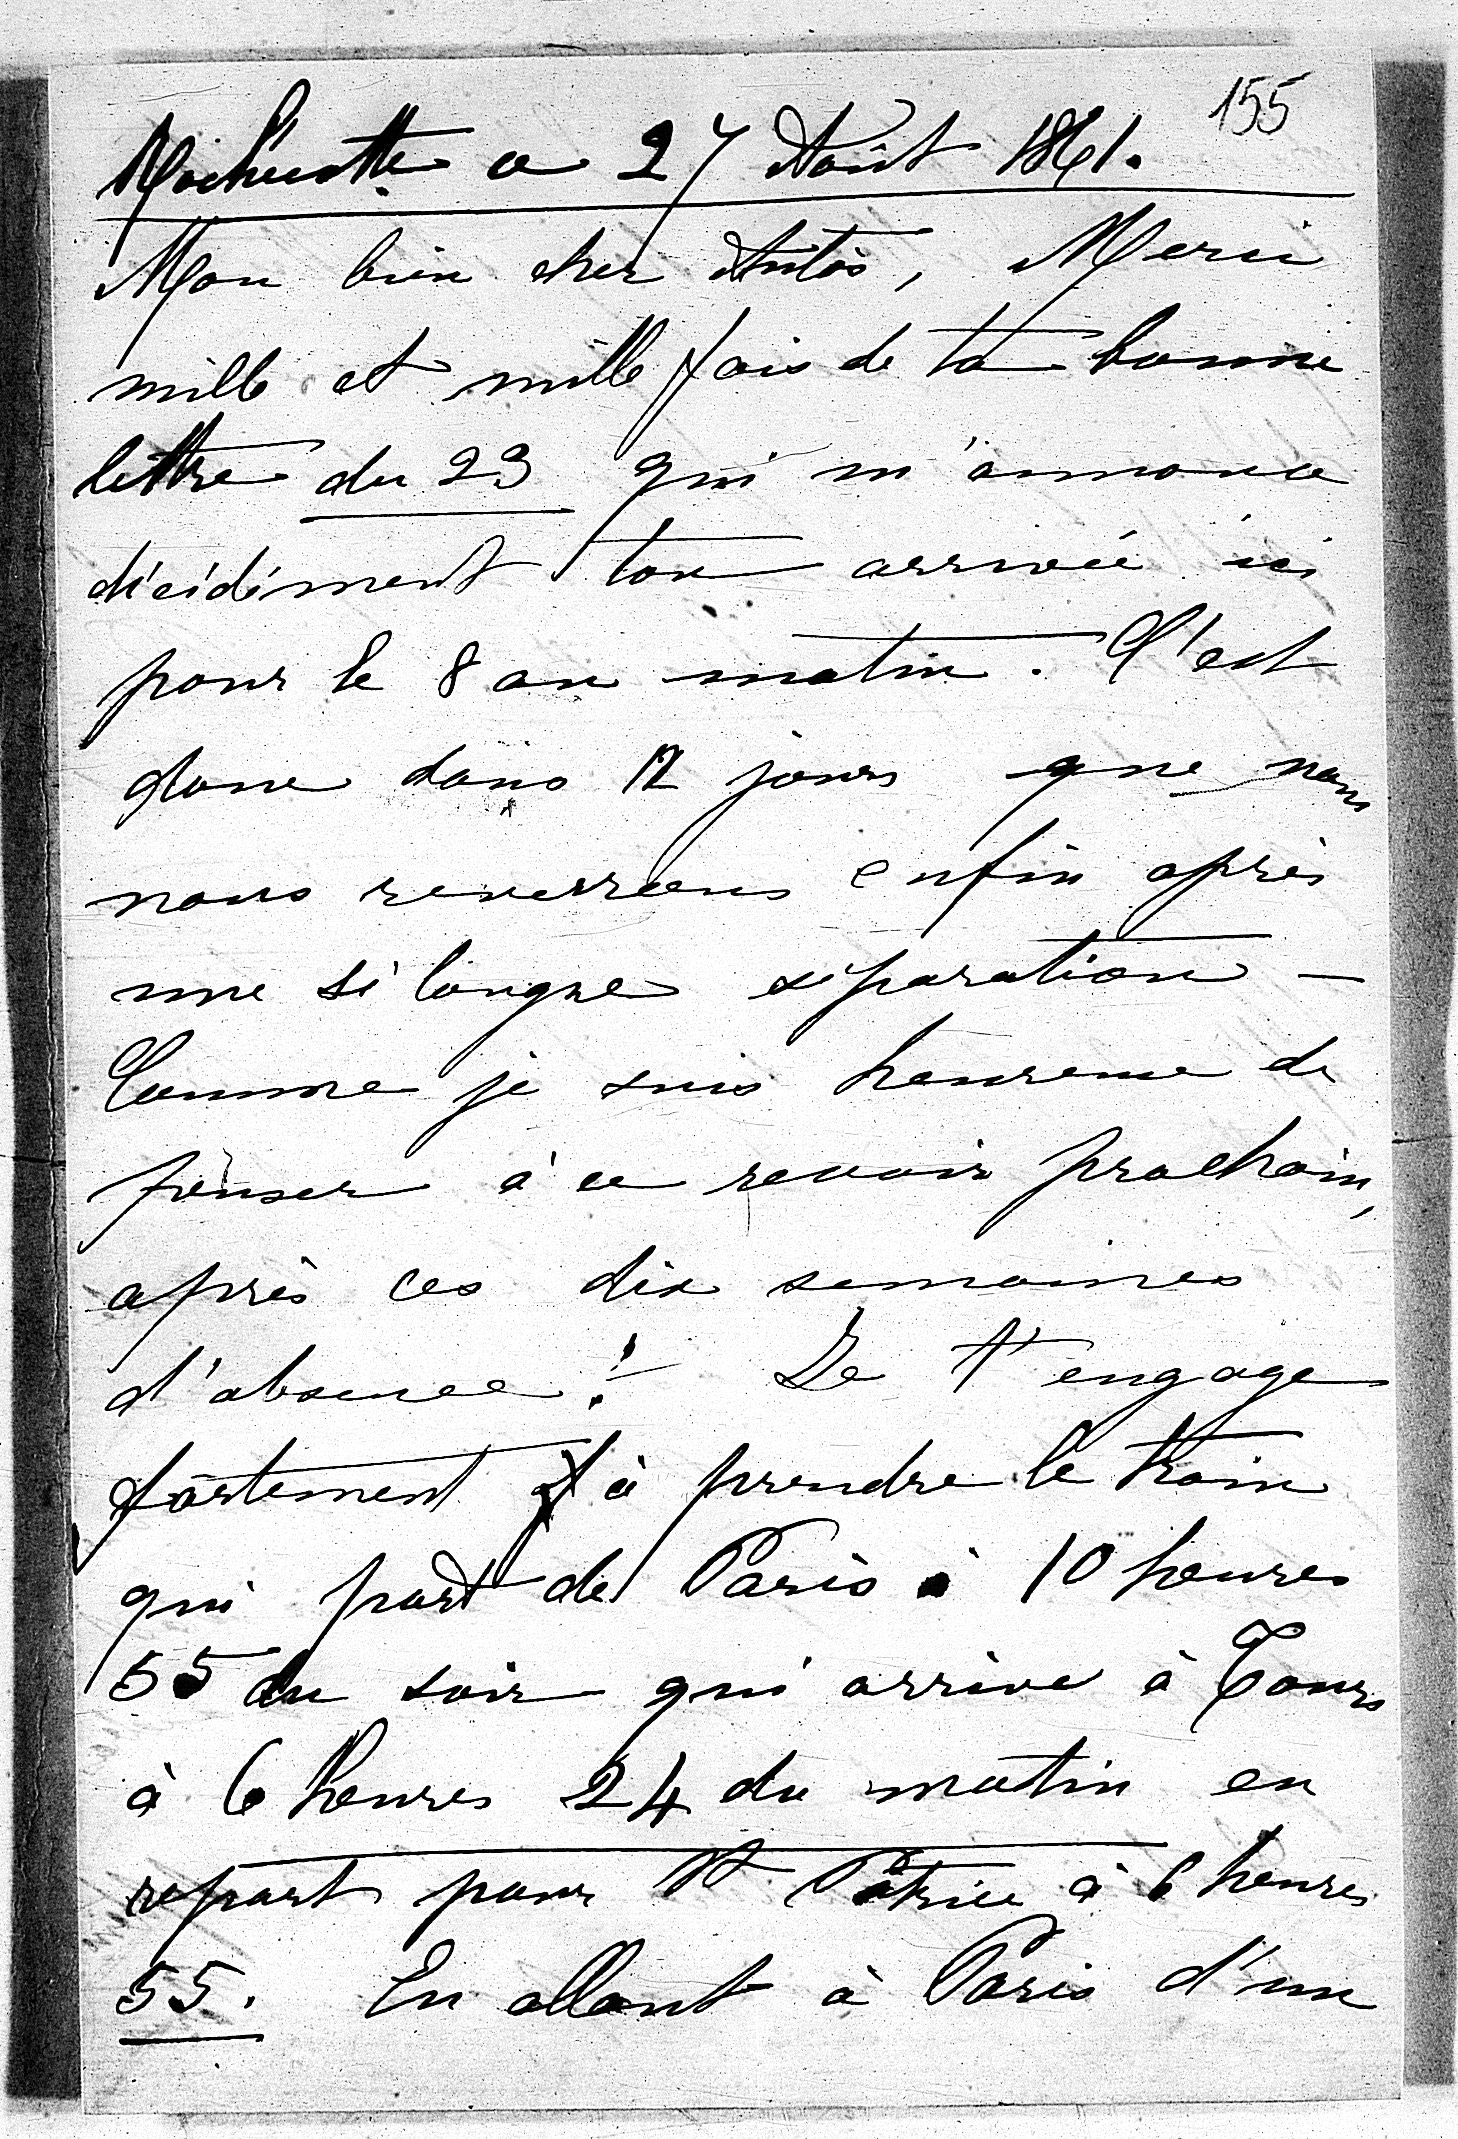 155
Rochecotte ce 27 Août 1861.
Mon bien cher Antos, Merci
mille et mille fois de ta bonne
lettre du 23 qui m'annonce
décidément ton arrivée ici
pour le 8 au matin. C'est
donc dans 12 jours que nous
nous reverrons enfin après
une si longue séparation —
Comme je suis heureuse de
penser à ce revoir prochain,
après ces dix semaines
d'absence! — Je t'engage
fortement à prendre le train
qui part de Paris à 10 heures
55 du soir qui arrive à Tours
à 6 heures 24 du matin en
repart pour St Patrice à 6 heures
55. En allant à Paris d'un